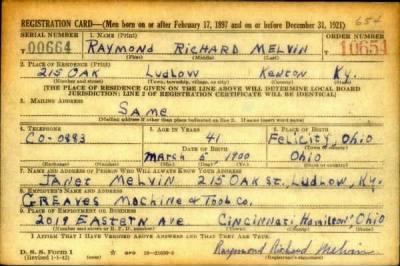 REGISTRATION CARD—(Men born on or after February 17, 1897 and on or before December 31, 1921) 654
SERIAL NUMBER 1. NAME (Print) ORDER NUMBER
T00664 RAYMOND RICHARD MELVIN T10654
(First) (Middle) (Last)
2. PLACE OF RESIDENCE (Print)
215 OAK LUDLOW KENTON KY.
(Number and street) (Town, township, village, or city) (County) (State)
[THE PLACE OF RESIDENCE GIVEN ON THE LINE ABOVE WILL DETERMINE LOCAL BOARD
JURISDICTION; LINE 2 OF REGISTRATION CERTIFICATE WILL BE IDENTICAL]
3. MAILING ADDRESS
SAME
[Mailing address if other than place indicated on line 2. If same insert word same]
4. TELEPHONE 5. AGE IN YEARS 6. PLACE OF BIRTH
CO-0883 41 FELICITY, Ohio
DATE OF BIRTH
MARCH 5, 1900 Ohio
7. NAME AND ADDRESS OF PERSON WHO WILL ALWAYS KNOW YOUR ADDRESS
JANET MELVIN 215 OAK ST., LUDLOW, KY.
8. EMPLOYER'S NAME AND ADDRESS
GREAVES MACHINE & TOOL CO.
9. PLACE OF EMPLOYMENT OR BUSINESS
2019 EASTERN AVE CINCINNATI HAMILTON, Ohio
I AFFIRM THAT I HAVE VERIFIED ABOVE ANSWERS AND THAT THEY ARE TRUE.
D. S. S. Form 1
(Revised 1-1-42) GPO Raymond Richard Melvin